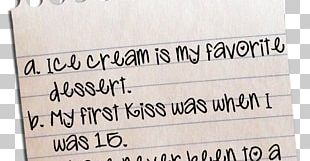 a. Ice cream is my favorite
dessert.
b. My first kiss was when I
was 15.
never been to a